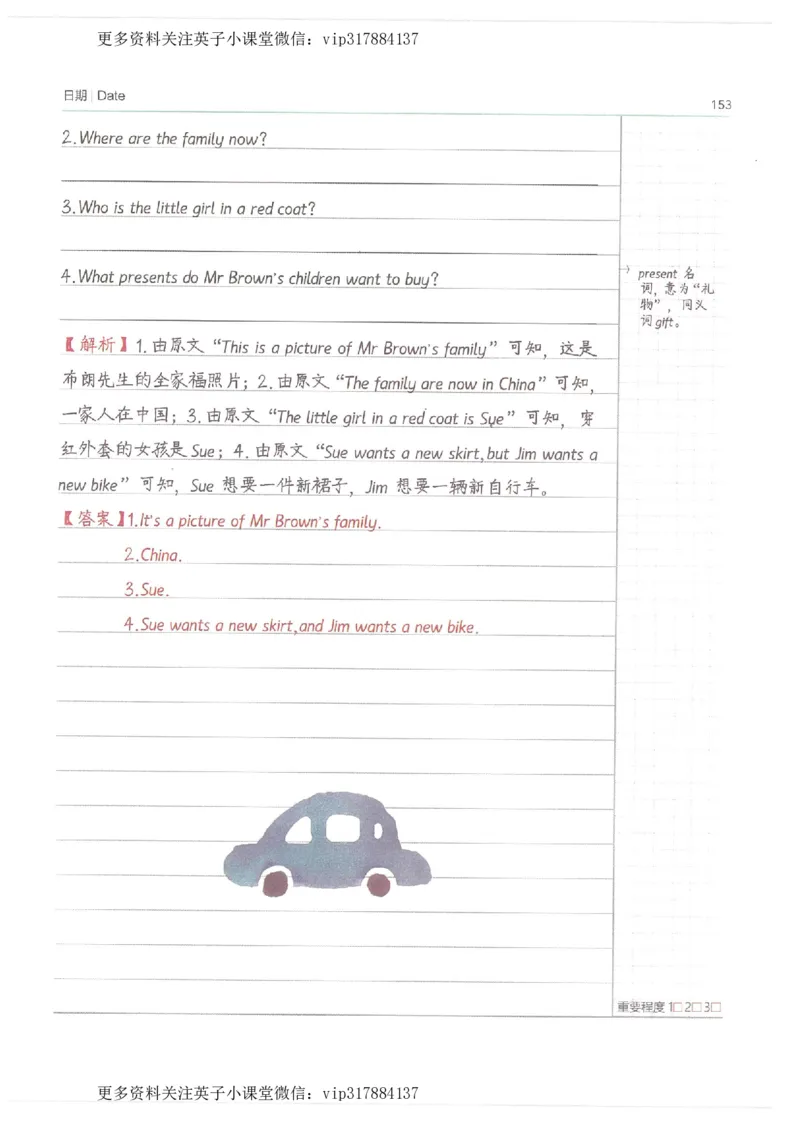 更多资料关注英子小课堂微信：vip317884137
日期 | Date
153
2.Where are the family now?
3.Who is the little girl in a red coat?
4.What presents do Mr Brown's children want to buy?
present 名
词，意为“礼
物”，同义
词gift。
【解析】1.由原文“This is a picture of Mr Brown's family”可知，这是
布朗先生的全家福照片；2.由原文“The family are now in China”可知，
一家人在中国；3.由原文“The little girl in a red coat is Sue”可知，穿
红外套的女孩是Sue；4.由原文“Sue wants a new skirt,but Jim wants a
new bike”可知，Sue想要一件新裙子，Jim想要一辆新自行车。
【答案】1.It's a picture of Mr Brown's family.
2.China.
3.Sue.
4.Sue wants a new skirt,and Jim wants a new bike.
重要程度 1□2□3□
更多资料关注英子小课堂微信：vip317884137